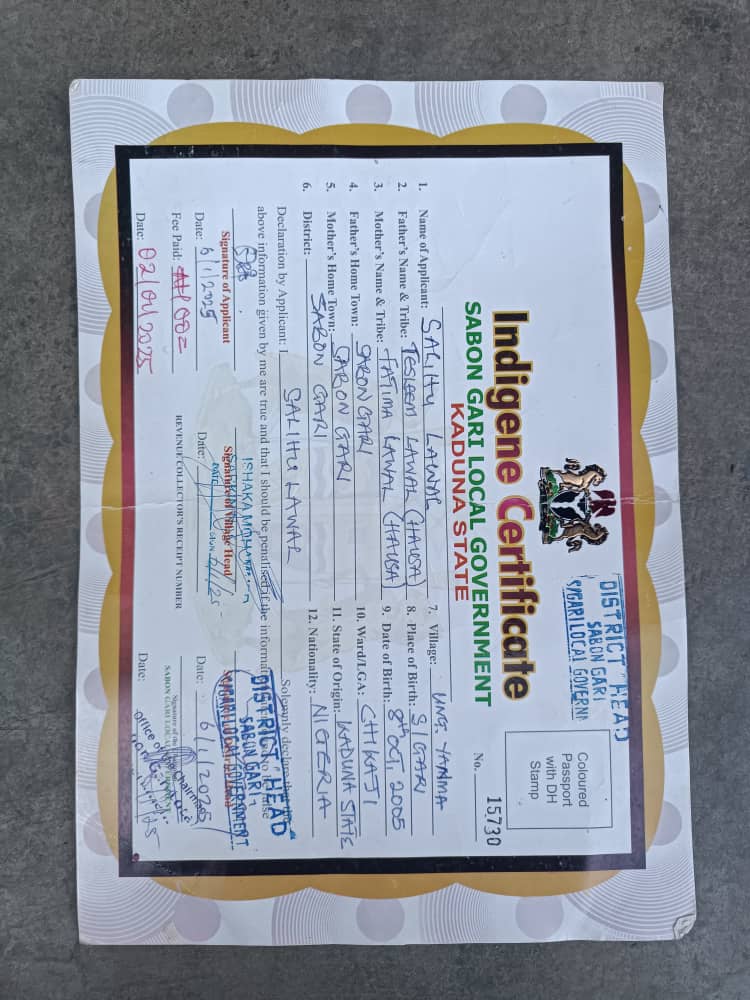 DISTRICT HEAD
SABON GARI
S/GARI LOCAL GOVERN
Indigene Certificate
SABON GARI LOCAL GOVERNMENT
KADUNA STATE
Coloured
Passport
with DH
Stamp
No. 15730
1. Name of Applicant: SALIHU LAWAL
2. Father's Name & Tribe: TESLEEM LAWAL (HAUSA)
3. Mother's Name & Tribe: FATIMA LAWAL (HAUSA)
4. Father's Home Town: SABON GARI
5. Mother's Home Town: SABON GARI
6. District: SABON GARI
7. Village: UNG. YANMA
8. Place of Birth: S/GARI
9. Date of Birth: 8th OCT 2005
10. Ward/LGA: CHIKAJI
11. State of Origin: KADUNA STATE
12. Nationality: NIGERIA
Declaration by Applicant: I SALIHU LAWAL Solemnly declare that the
above information given by me are true and that I should be penalised if the informat false
Signature of Applicant
Date: 6/1/2025
ISHAKA
Signature of Village Head
Date:
DISTRICT HEAD
SABON GARI
S/GARI LOCAL GOVERNMENT
Date: 6/1/2025
Fee Paid:
REVENUE COLLECTOR'S RECEIPT NUMBER
Date: 02/01/2025
Signature of the
SABON GARI LOCAL
Office of the Chairman
Date: